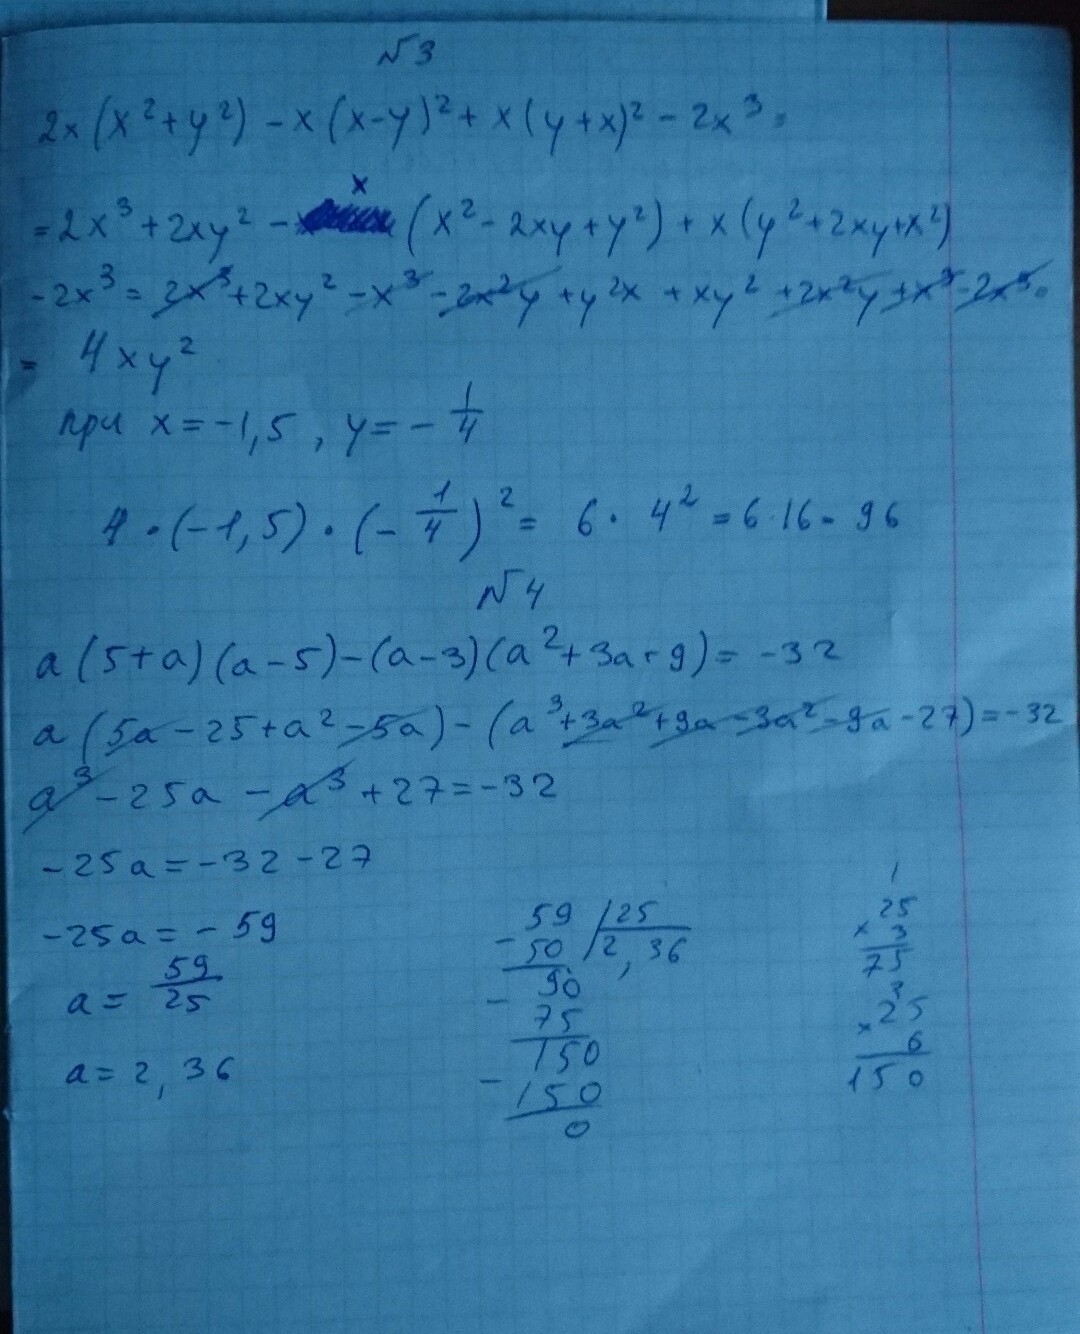 №3
2x(x²+y²)-x(x-y)²+x(y+x)²-2x³=
=2x³+2xy²-x(x²-2xy+y²)+x(y²+2xy+x²)
-2x³=2x³+2xy²-x³-2x²y+y²x+xy²+2x²y+x³-2x³=
= 4xy²
при x=-1,5, y=-1/4
4·(-1,5)·(-1/4)²= 6·4²=6·16=96
№4
a(5+a)(a-5)-(a-3)(a²+3a+9)=-32
a(5a-25+a²-5a)-(a³+3a²+9a-3a²-9a-27)=-32
a³-25a-a³+27=-32
-25a=-32-27
-25a=-59
a=59/25
a=2,36
59 25
-50 2,36
90
-75
150
-150
0
1
25
×3
75
3
×25
6
150